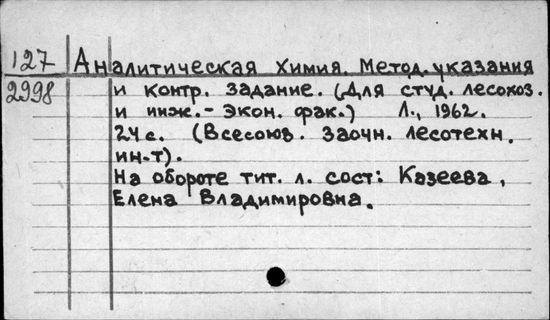 127
2998
Аналитическая химия. Метод. указания
и контр. задание. (Для студ. лесохоз.
и инж.-экон. фак.) Л., 1962.
24 с. (Всесоюз. заочн. лесотехн.
ин-т).
На обороте тит. л. сост: Казеева,
Елена Владимировна.